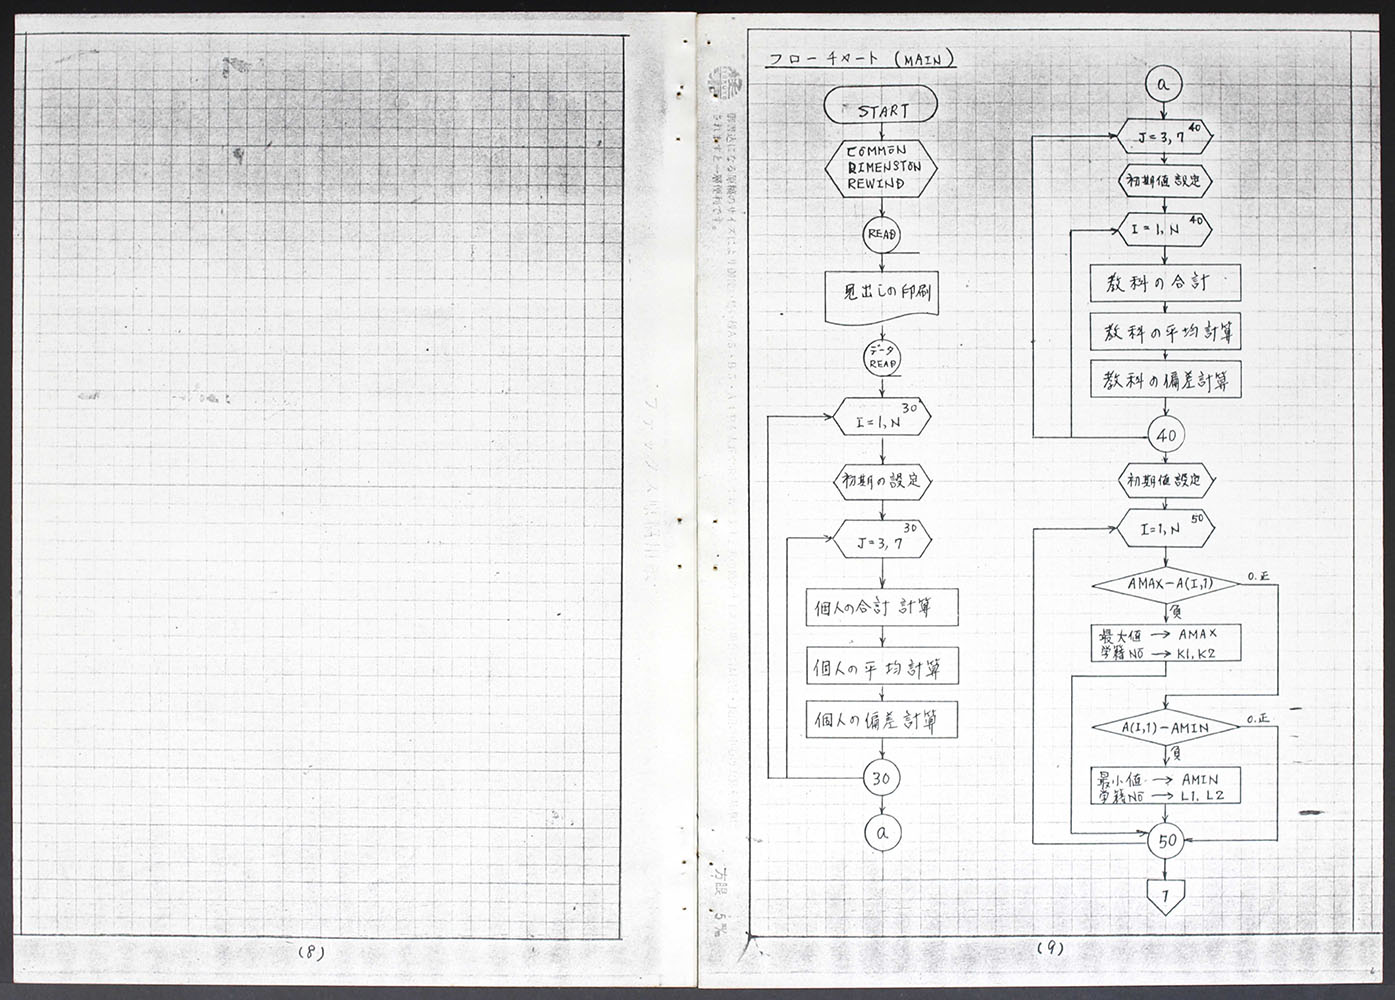 (8)
フローチャート (MAIN)
START
COMMON
DIMENSION
REWIND
READ
見出しの印刷
データ
READ
30
I=1,N
初期の設定
30
J=3,7
個人の合計計算
個人の平均計算
個人の偏差計算
30
a
a
40
J=3,7
初期値設定
40
I=1,N
教科の合計
教科の平均計算
教科の偏差計算
40
初期値設定
50
I=1,N
AMAX-A(I,1)
0.正
負
最大値 → AMAX
学籍NO → K1,K2
A(I,1)-AMIN
0.正
負
最小値 → AMIN
学籍NO → L1,L2
50
1
(9)
方眼 5㎜